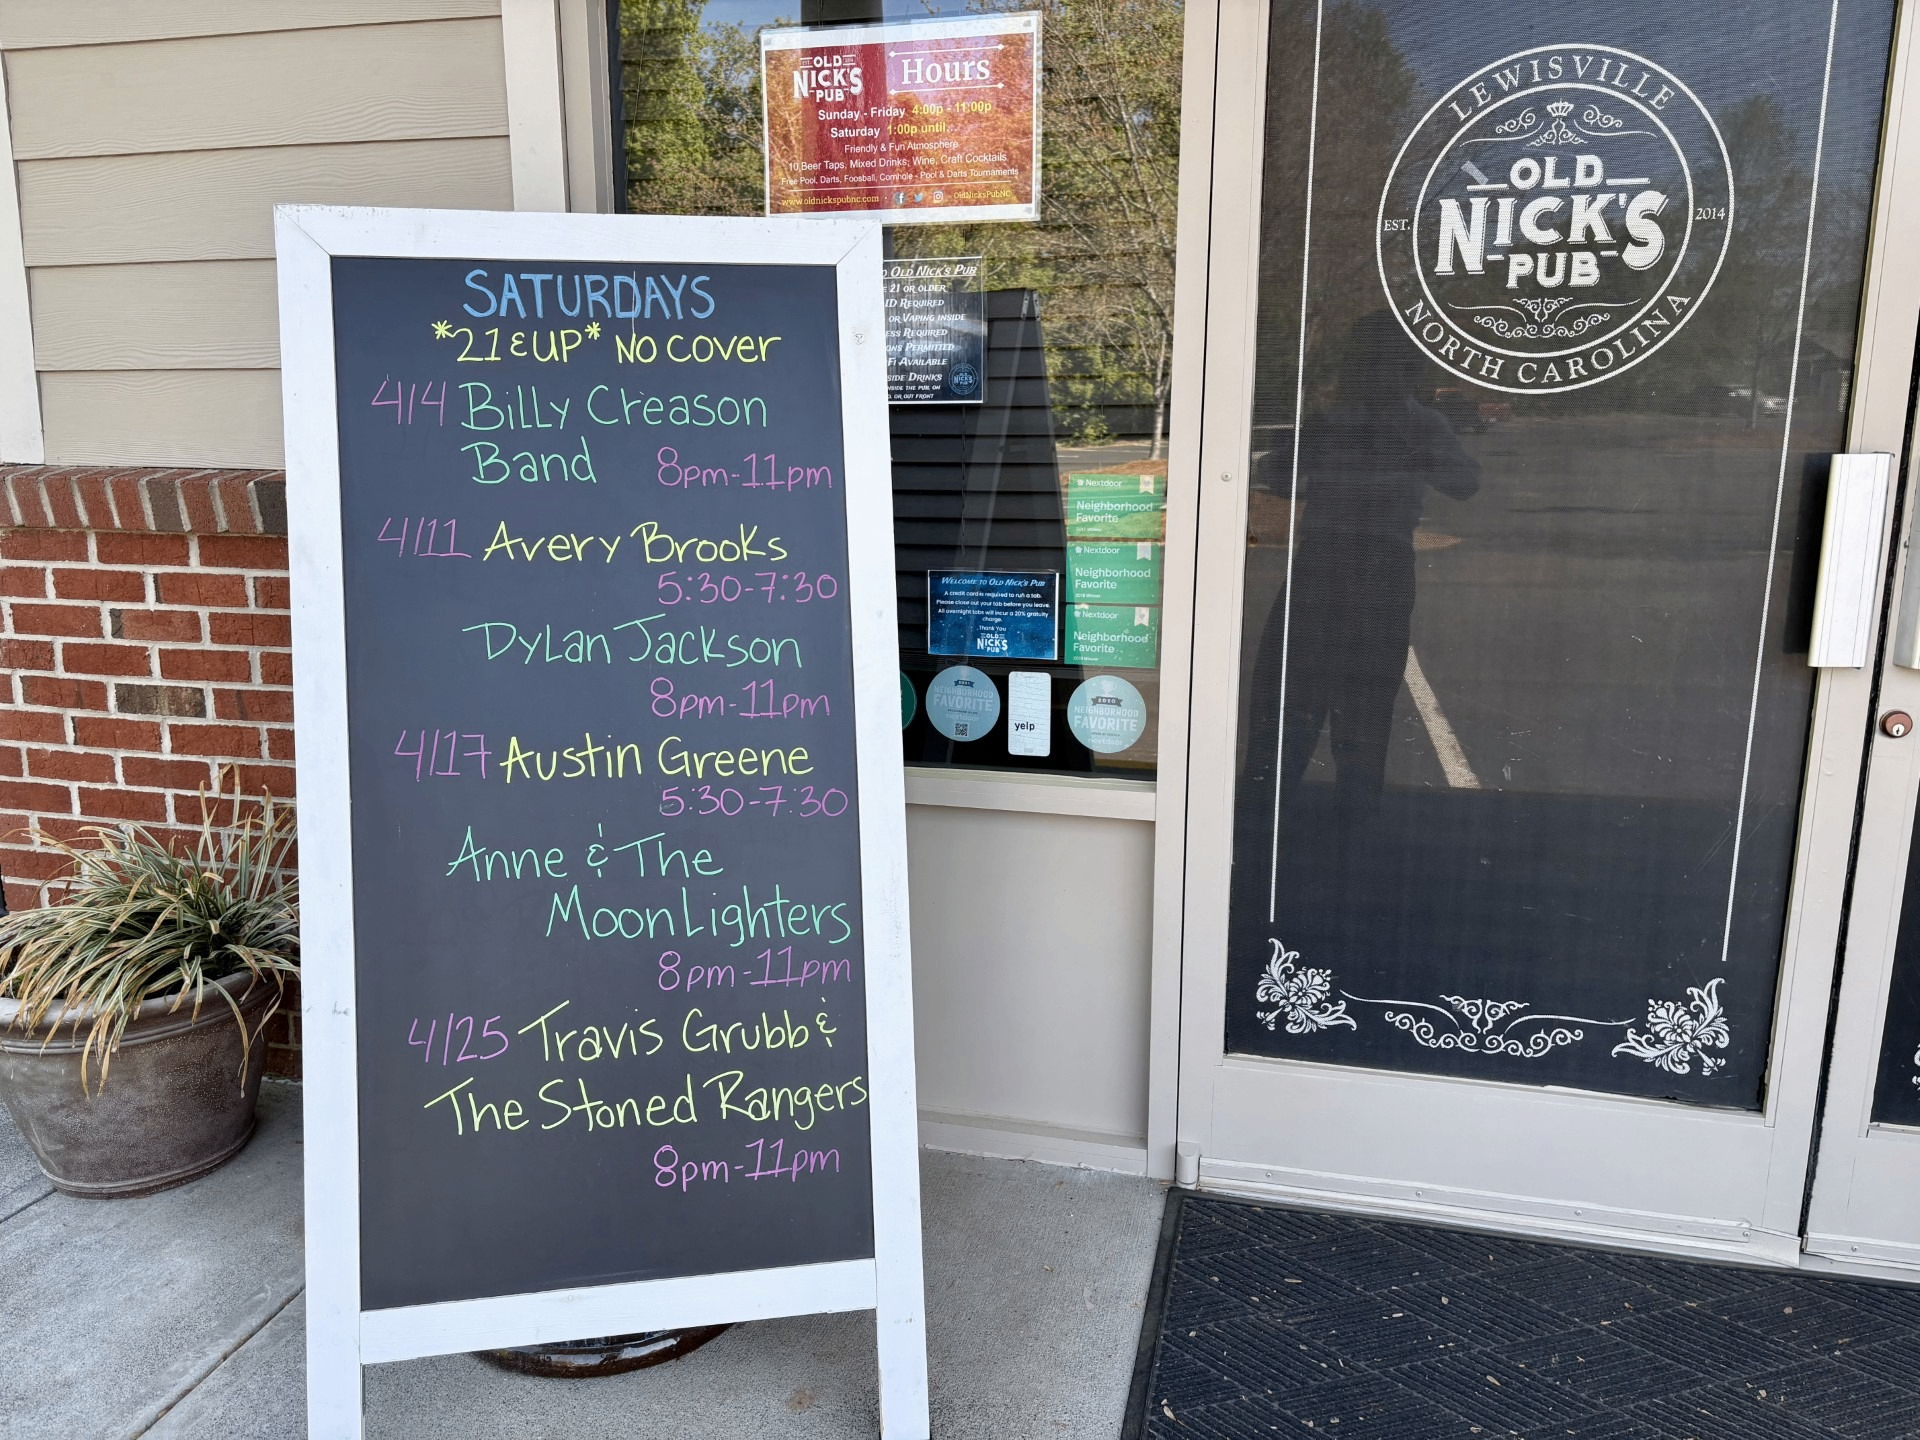 SATURDAYS
*21 & UP* NO COVER
4/4 Billy Creason
Band 8pm-11pm
4/11 Avery Brooks
5:30-7:30
Dylan Jackson
8pm-11pm
4/17 Austin Greene
5:30-7:30
Anne & The
MoonLighters
8pm-11pm
4/25 Travis Grubb &
The Stoned Rangers
8pm-11pm
OLD
NICK'S
PUB
Hours
Sunday - Friday 4:00p - 11:00p
Saturday 1:00p until...
Friendly & Fun Atmosphere
10 Beer Taps, Mixed Drinks, Wine, Craft Cocktails
Free Pool, Darts, Foosball, Cornhole - Pool & Darts Tournaments
www.oldnickspubnc.com - OldNicksPubNC
OLD NICK'S PUB
21 OR OLDER
ID REQUIRED
OR VAPING INSIDE
REQUIRED
PERMITTED
AVAILABLE
DRINKS
INSIDE THE PUB, OR
OR OUT FRONT
Nextdoor
Neighborhood
Favorite
Nextdoor
Neighborhood
Favorite
Nextdoor
Neighborhood
Favorite
WELCOME TO OLD NICK'S PUB
A credit card is required to run a tab.
Please close out your tab before you leave.
All overnight tabs will incur a 20% gratuity
charge.
Thank You
OLD
NICK'S
PUB
2021
NEIGHBORHOOD
FAVORITE
nextdoor
yelp
2020
NEIGHBORHOOD
FAVORITE
nextdoor
LEWISVILLE
EST. 2014
OLD
NICK'S
PUB
NORTH CAROLINA